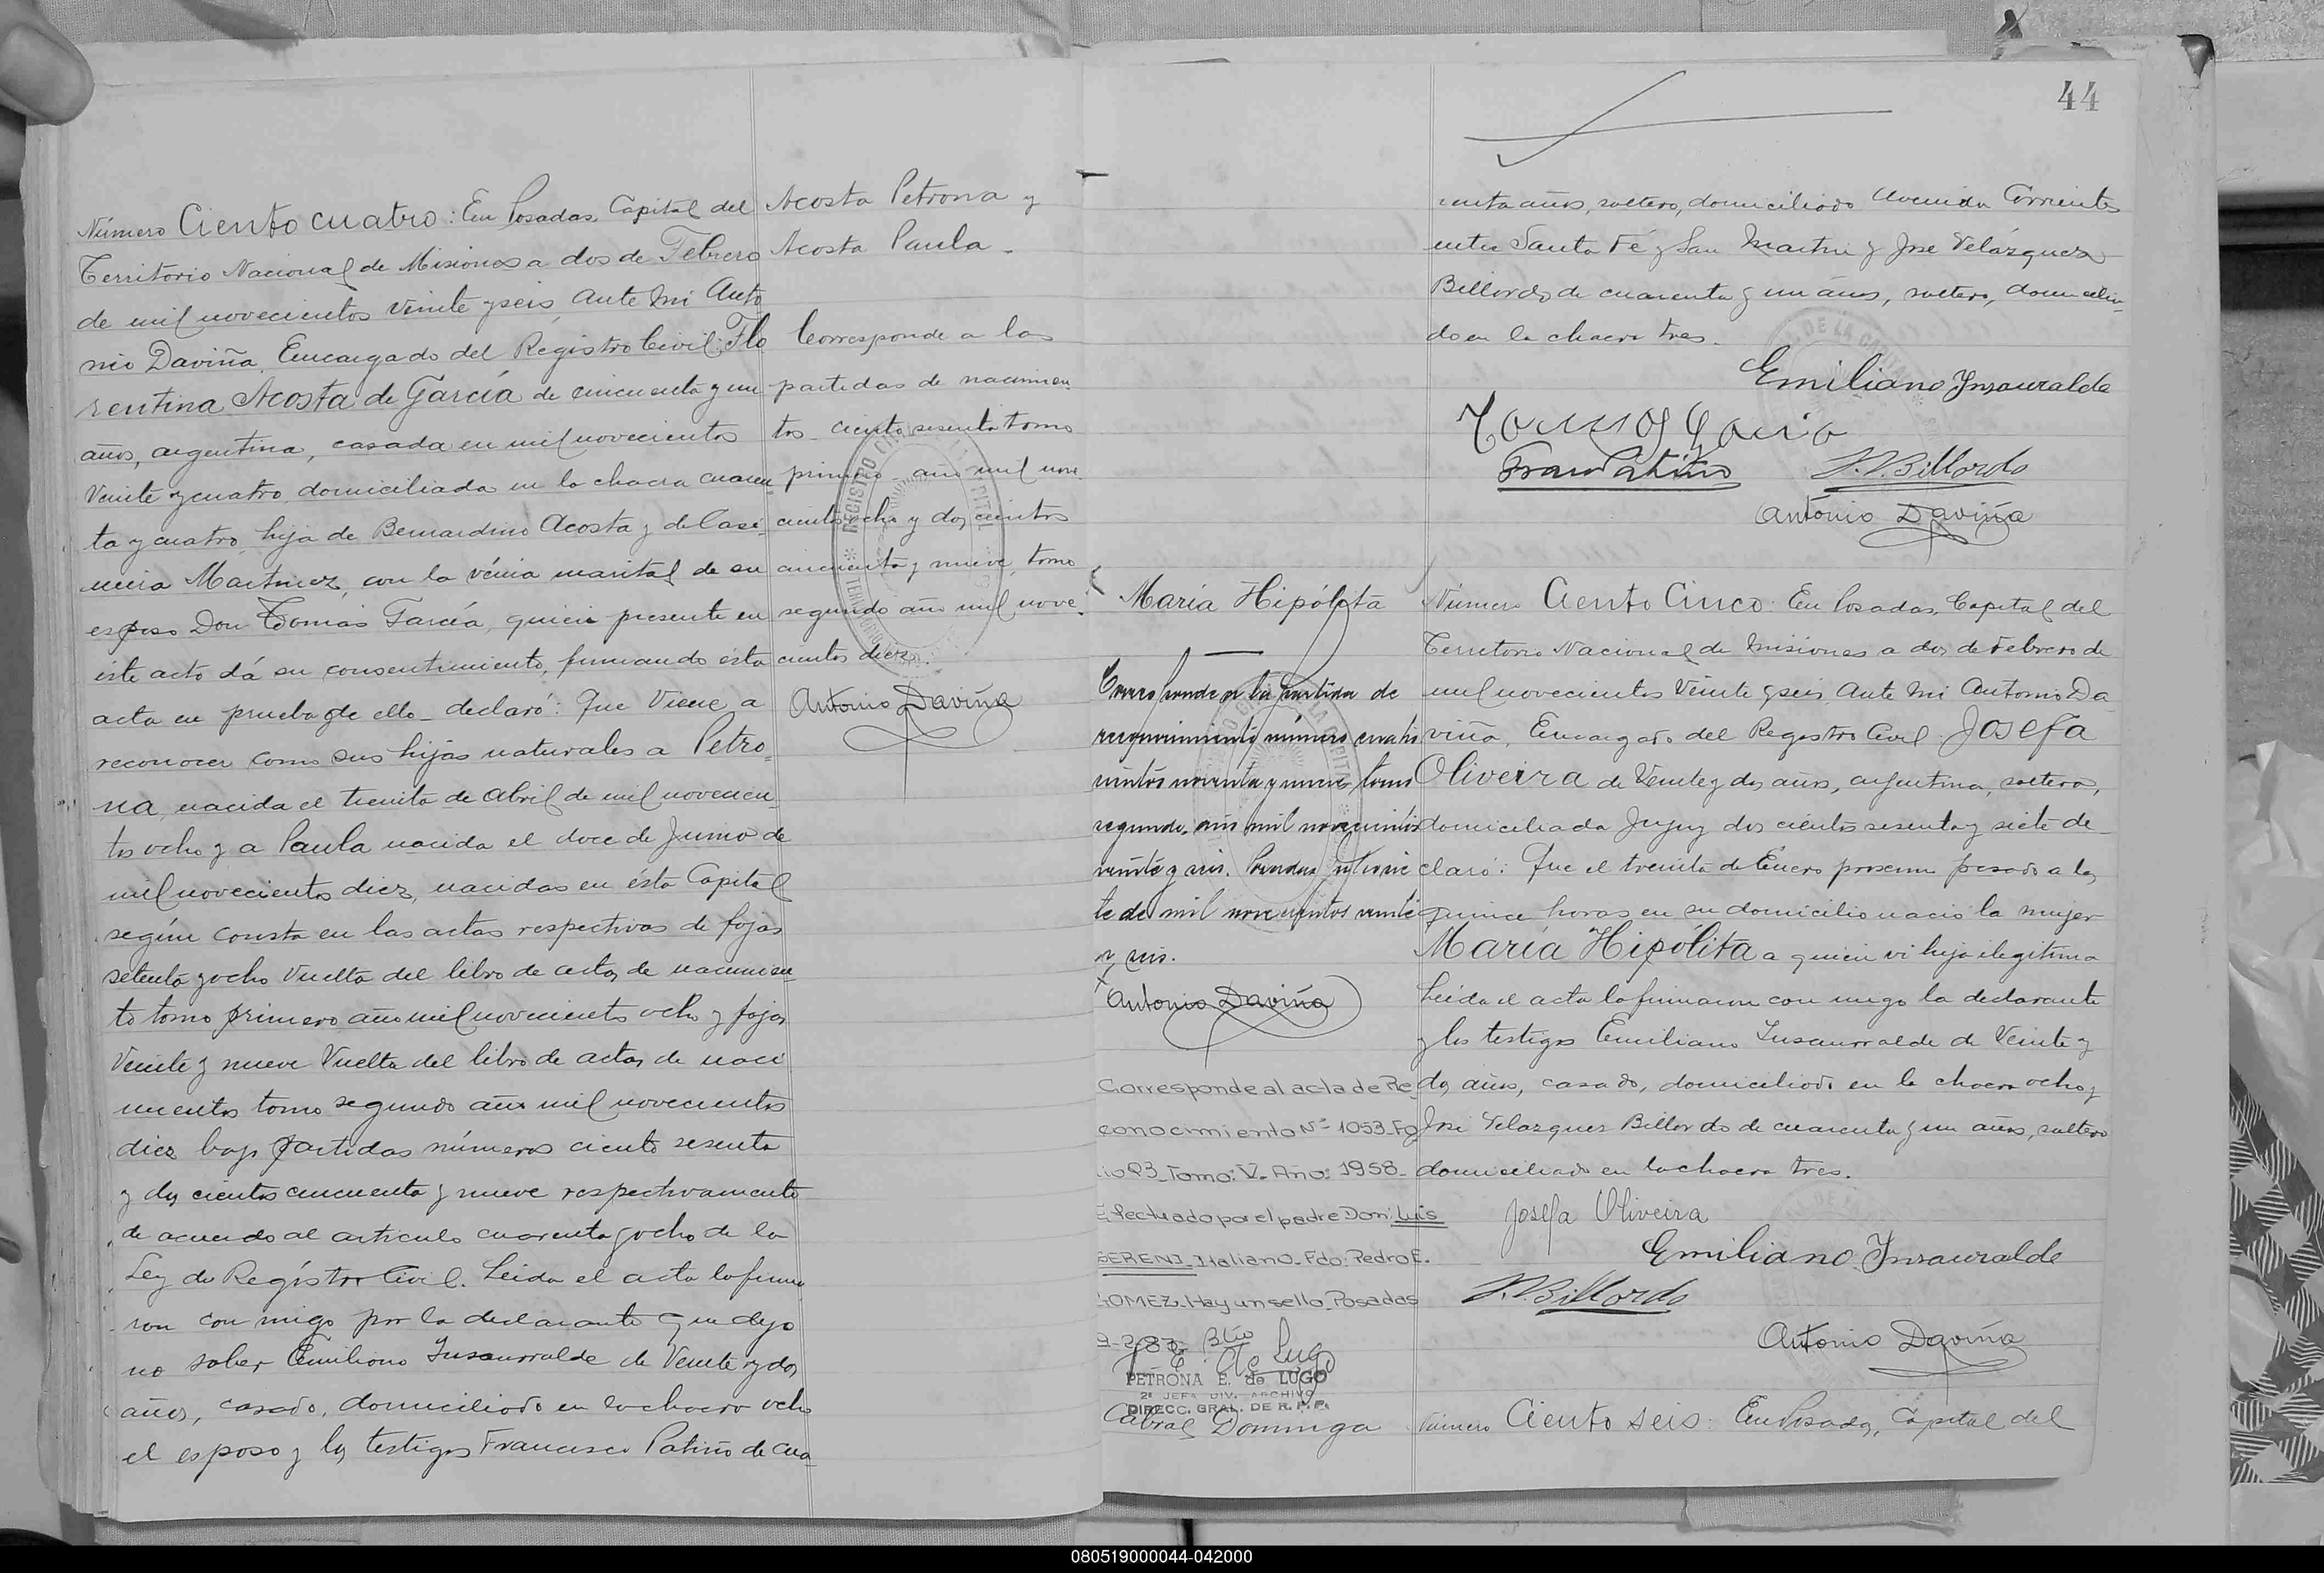 Número Ciento cuatro: En Posadas, Capital del
Territorio Nacional de Misiones a dos de Febrero
de mil novecientos veinte y seis, Ante Mi Anto
nio Daviña, Encargado del Registro Civil: Flo
rentina Acosta de García de cincuenta y un
años, argentina, casada en mil novecientos
veinte y cuatro, domiciliada en la chacra cuaren
ta y cuatro, hija de Bernardino Acosta y de Casi
mira Martinez, con la vénia marital de su
esposo Don Tomás García, quien presente en
éste acto dá su consentimiento, firmando ésta
acta en prueba de ello declaró: Que Viene a
reconocer como sus hijas naturales a Petro
na, nacida el treinta de Abril de mil novecien
tos ocho y a Paula nacida el doce de Junio de
mil novecientos diez, nacidas en ésta Capital
según consta en las actas respectivas de fojas
setenta y ocho Vuelta del libro de actas de nacimien
to tomo primero año mil novecientos ocho y fojas
Veinte y nueve Vuelta del libro de actas de naci
mientos tomo segundo año mil novecientos
diez bajo partidas números ciento sesenta
y dos cientos cincuenta y nueve respectivamente
de acuerdo al artículo cuarenta y ocho de la
Ley de Registro Civil. Leida el acta la firma
ron con migo por la declarante que dijo
no saber Emiliano Insaurralde de Veinte y dos
años, casado, domiciliado en la chacra ocho
el esposo y los testigos Francisco Patiño de cua
Acosta Petrona y
Acosta Paula
Corresponde a las
partidas de nacimien
tos ciento sesenta tomo
primero año mil nove
cientos ocho y dos cientos
cincuenta y nueve, tomo
segundo año mil nove
cientos diez.
Antonio Daviña
44
renta años, soltero, domiciliado Avenida Corrientes
entre Santa Fé y San Martin y Jose Velázquez
Billordo, de cuarenta y un años, soltero, domicilia
do en la chacra tres.
Emiliano Insauralde
Tomas Garcia
Fran Patiño J.V. Billordo
Antonio Daviña
María Hipólita
Corresponde a la partida de
reconocimiento número cuatro
cientos noventa y nueve, tomo
segundo, año mil novecientos
veinte y seis. Posadas, Setiembre
de mil novecientos veinte
y seis.
Antonio Daviña
Corresponde al acta de Re
conocimiento Nº 1053_Fo
lio 93_Tomo: V_Año: 1958_
Efectuado por el padre Don: Luis
SERENI_Italiano_Fdo: Pedro E.
GOMEZ_Hay un sello_Posadas
PETRONA E. de LUGO
2ª JEFA DIV. ARCHIVO
DIRECC. GRAL. DE R. P. P.
Cabral Dominga
Número Ciento Cinco: En Posadas, Capital del
Territorio Nacional de Misiones a dos de Febrero de
mil novecientos Veinte y seis, Ante Mi Antonio Da
viña, Encargado del Registro Civil: Josefa
Oliveira de Veinte y dos años, argentina, soltera,
domiciliada Jujuy dos cientos sesenta y siete de
claró: Que el treinta de Enero proximo pasado a las
quince horas en su domicilio nació la mujer
María Hipólita a quien vi hija ilegítima
Leida el acta la firmaron con migo la declarante
y los testigos Emiliano Insaurralde de Veinte y
dos años, casado, domiciliado en la chacra ocho y
José Velazquez Billordo de cuarenta y un años, soltero
domiciliado en la chacra tres.
Josefa Oliveira
Emiliano Insauralde
J.V. Billordo
Antonio Daviña
Número Ciento seis: En Posadas, Capital del
080519000044-042000